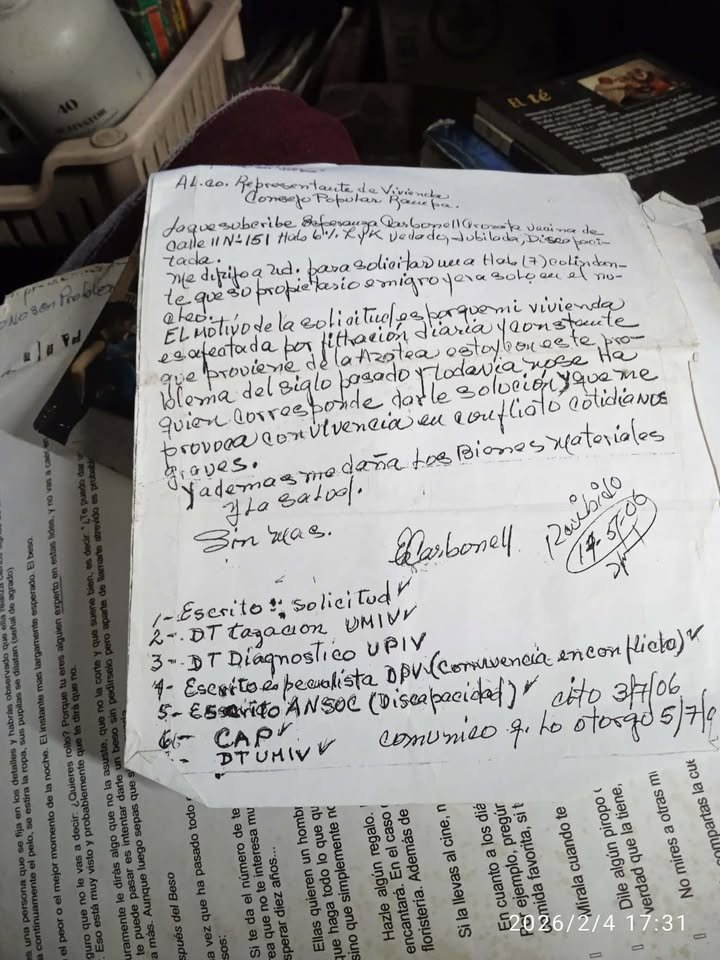 Al co. Representante de Vivienda
Consejo Popular Rampa.
La que suscribe Esperanza Carbonell vecina de
calle 11 Nº 151 Hab 6 % L y K Vedado, Jubilada, Discapaci-
tada.
Me dirijo a ud. para solicitar una Hab (7) colindan-
te que su propietario emigro y era solo en el nu-
cleo.
El Motivo de la solicitud es porque mi vivienda
es afectada por filtración diaria y constante
que proviene de la Azotea estoy con este pro-
blema del siglo pasado y todavia no se ha
quien corresponde darle solución y que me
provoca convivencia en conflicto cotidianos
graves.
Y ademas me daña los Bienes materiales
y La salud.
Sin mas.
ECarbonell
Recibido
5-06
1- Escrito: solicitud ✓
2- DT tazacion UMIV ✓
3- DT Diagnostico UPIV
4- Escrito especialista DPV (Convivencia en conflicto) ✓
5- Escrito ANSOC (Discapacidad) ✓ cito 3/7/06
6- CAP ✓ comunico q. Lo otorgo 5/7/
- DT UMIV ✓
El té
40
No son Problema
una persona que se fija en los detalles y habrás observado que ella
a continuamente el pelo, se estira la ropa, sus pupilas se dilatan (señal de agrado)
el peor o el mejor momento de la noche. El instante mas largamente esperado. El beso.
guro que no le vas a decir: ¿Quieres rollo? Porque tu eres alguien experto en estas lides, y no vas a caer en
Eso está muy visto y probablemente que te dirá que no.
uramente le dirás algo que no la asuste, que no la corte y que suene bien, es decir: "¿Te puedo dar
te puede pasar es intentar darle un beso sin pedírselo pero aparte de llamarte atrevido es probable
a más. Aunque luego sepas que s
spués del Beso
a vez que ha pasado todo
sos:
Si te da el número de te
ea que no te interesa mu
sperar diez años...
Ellas quieren un hombr
que haga todo lo que qu
sino que simplemente no
Hazle algún regalo.
encantará. En el caso
floristería. Además de
Si la llevas al cine, n
En cuanto a los diá
Por ejemplo, pregún
comida favorita, si t
Mírala cuando te
Dile algún piropo
verdad que la tiene,
No mires a otras m
compartas la cu
2026/2/4 17:31